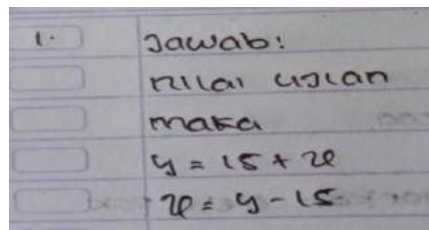 1. Jawab:
nilai ujian
maka
y = 15 + x
x = y - 15